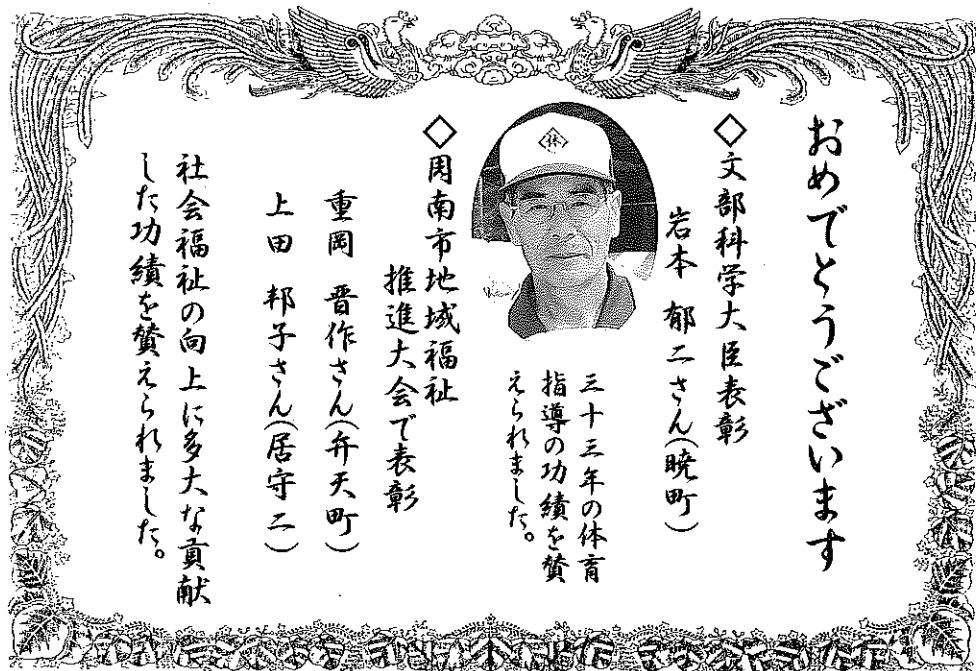 おめでとうございます
◇文部科学大臣表彰
岩本 郁二さん(暁町)
三十三年の体育
指導の功績を賛
えられました。
◇周南市地域福祉
推進大会で表彰
重岡 晋作さん(弁天町)
上田 邦子さん(居守二)
社会福祉の向上に多大な貢献
した功績を賛えられました。